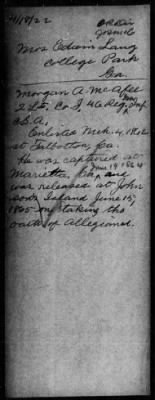 4/18/22
Mrs Odian Lang
College Park
Ga.
Morgan A. McAfee
2 Lt, Co I, 46 Reg, Ga Inf
C.S.A.
Enlisted Mch. 4, 1862
at Talbotton, Ga.
He was captured at
Marietta, Ga, June 19 1864 and
was released at John
sons Island June 15,
1865 on taking the
oath of allegiance.